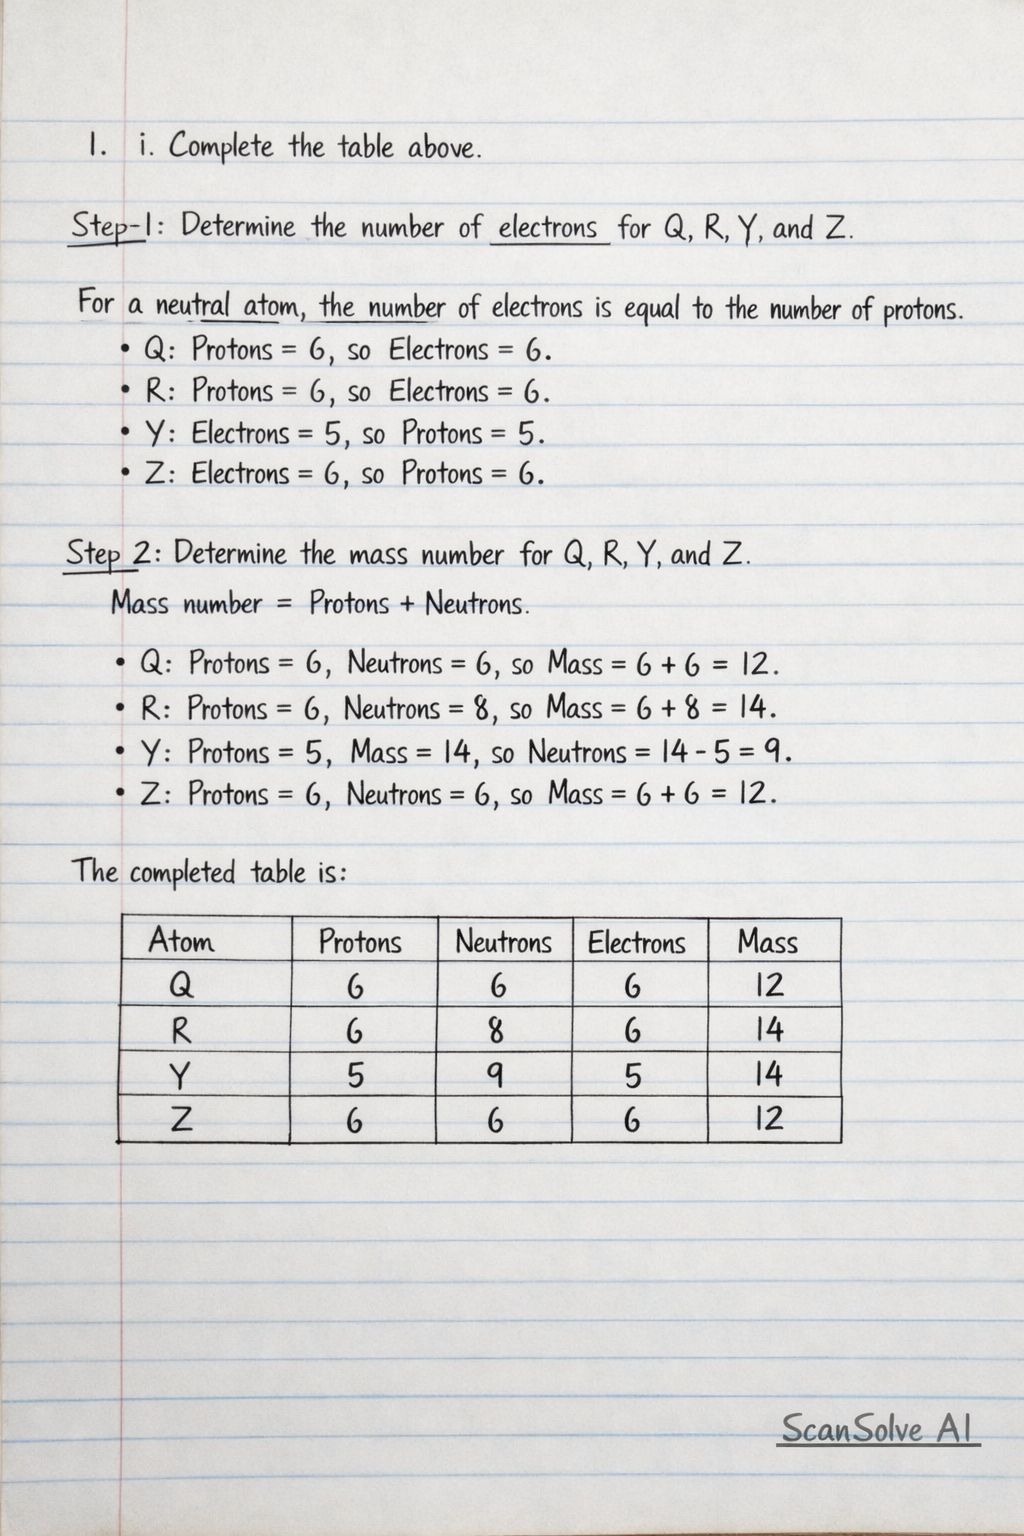 1. i. Complete the table above.
Step-1: Determine the number of electrons for Q, R, Y, and Z.
For a neutral atom, the number of electrons is equal to the number of protons.
• Q: Protons = 6, so Electrons = 6.
• R: Protons = 6, so Electrons = 6.
• Y: Electrons = 5, so Protons = 5.
• Z: Electrons = 6, so Protons = 6.
Step 2: Determine the mass number for Q, R, Y, and Z.
Mass number = Protons + Neutrons.
• Q: Protons = 6, Neutrons = 6, so Mass = 6 + 6 = 12.
• R: Protons = 6, Neutrons = 8, so Mass = 6 + 8 = 14.
• Y: Protons = 5, Mass = 14, so Neutrons = 14 - 5 = 9.
• Z: Protons = 6, Neutrons = 6, so Mass = 6 + 6 = 12.
The completed table is:
Atom Protons Neutrons Electrons Mass
Q 6 6 6 12
R 6 8 6 14
Y 5 9 5 14
Z 6 6 6 12
ScanSolve AI